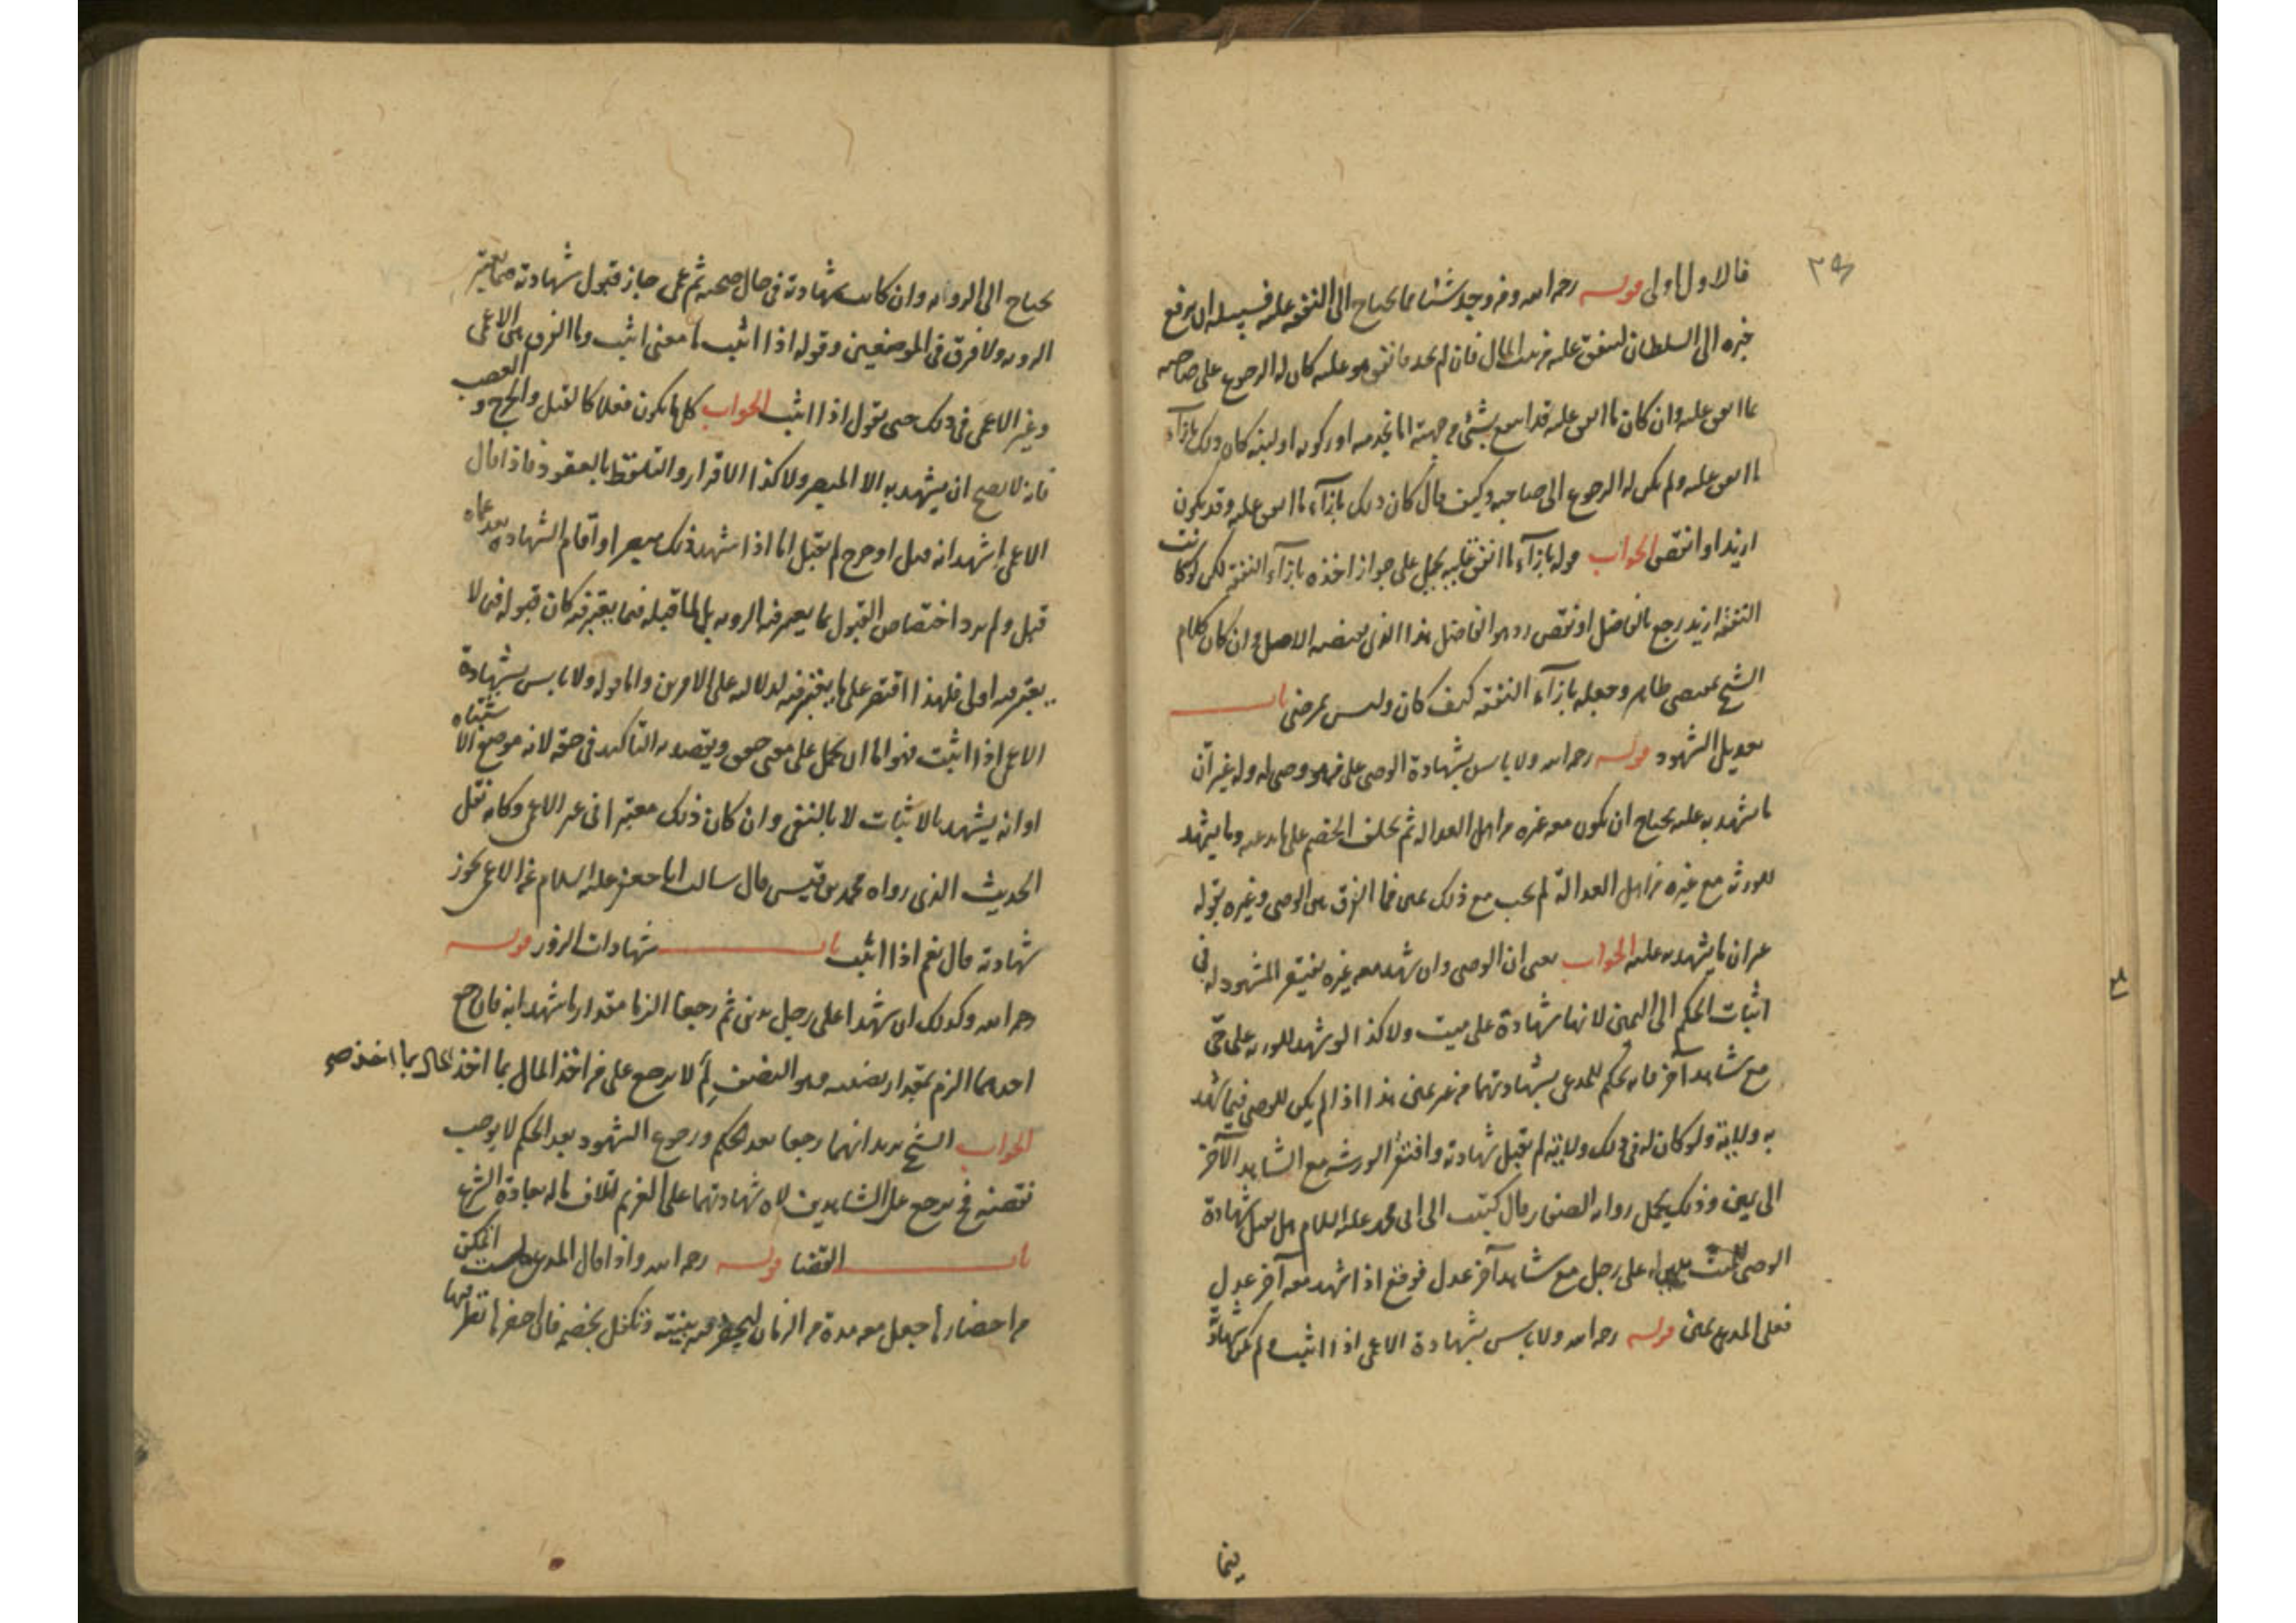 فالاول اولى قوله رحمه الله ومن وجد شيئا مما يحتاج الى النفقه عليه فسبيله ان يرفع
خبره الى السلطان لينفق عليه من بيت المال فان لم يجد وانفق هو عليه كان له الرجوع على صاحبه
بما انفق عليه وان كان ما انفق عليه قد انتفع بشئ من جهته اما بخدمه او ركوب او لبنه كان ذلك بازآء
ما انفق عليه ولم يكن له الرجوع الى صاحبه وكيف قال كان ذلك بازآء ما انفق عليه وقد يكون
ازيد او انقص الجواب قوله بازآء ما انفق عليه يحمل على جواز اخذه بازآء النفقة لكن لو كانت
النفقة ازيد رجع بالفاضل او انقص رد هو الفاضل هذا الذي يقتضيه الاصل وان كان كلام
الشيخ يقتضي ظاهره جعله بازآء النفقة كيف كان وليس بمرضى باب
تعديل الشهود قوله رحمه الله ولا باس بشهادة الوصى على من هو وصى له وله غير ان
ما شهد به عليه يحتاج ان يكون معه غيره من اهل العداله ثم يحلف الخصم على ما يدعيه وما يشهد
للورثه مع غيره من اهل العدالة لم يجب مع ذلك يمين فما الفرق بين الوصى وغيره بقوله
غير ان ما يشهد به عليه الجواب يعنى ان الوصى وان شهد معه غيره يفتقر المشهود له في
اثبات الحكم الى اليمين لانها شهادة على ميت ولا كذا لو شهد للورثه على حى
مع شاهد آخر فانه يحكم للمدعى بشهادتهما من غير يمين هذا اذا لم يكن للوصى فيما شهد
به ولاية ولو كان له في ذلك ولاية لم تقبل شهادته وافتقر الورثة مع الشاهد الآخر
الى يمين وذلك يحمل رواية الصفار قال كتبت الى ابى محمد عليه السلام هل تقبل شهادة
الوصى للميت بدين له على رجل مع شاهد آخر عدل فوقع اذا شهد معه آخر عدل
فعلى المدعى يمين قوله رحمه الله ولا باس بشهادة الاعمى اذا اثبت ولم يكن شهادة
فيما
يحتاج الى الرؤيه وان كانت شهادته في حال صحته ثم عمى جاز قبول شهادته فيما يعتبر
الرؤيه ولا فرق في الموضعين وقوله اذا اثبت ما معنى اثبت وما الفرق بين الاعمى
وغير الاعمى في ذلك حتى يقول اذا اثبت الجواب كل ما يكون فعلا كالقتل والجرح والغصب
فانه لا يصح ان يشهد به الا المبصر ولا كذا الاقرار والتلفظ بالعقود فاذا قال
الاعمى اشهد انه قتل او جرح لم يقبل اما اذا شهد ذلك مبصر او اقام الشهادة بعد عماه
قبل ولم يرد اختصاص القبول بما يعتبر فيه الرؤيه بل لما قبله فيما يعتبر فيه كان قبوله فيما لا
يعتبر فيه اولى فلهذا اقتصر على ما يعتبر فيه لدلالته على الامرين واما قوله ولا باس بشهادة
الاعمى اذا اثبت فهو اما ان يحمل على معنى حقق ويقصد به التاكيد في حقه لانه موضع الاشتباه
او انه يشهد بالاثبات لا بالنفى وان كان ذلك معتبرا في غير الاعمى وكانه نقل
الحديث الذى رواه محمد بن قيس قال سالت ابا جعفر عليه السلام عن الاعمى تجوز
شهادته قال نعم اذا اثبت باب شهادات الزور قوله
رحمه الله وكذلك ان شهدا على رجل بدين ثم رجعا الزما مقدار ما شهدا به فان رجع
احدهما الزم بمقدار نصيبه وهو النصف لم لا يرجع على من اخذ المال بما اخذ
الجواب الشيخ يريد انهما رجعا بعد الحكم ورجوع الشهود بعد الحكم لا يوجب
نقضه فيرجع على الشاهدين لان شهادتهما على الغريم اتلاف ماله بعادة الشرع
باب القضا قوله رحمه الله واذا قال المدعى لست اتمكن
من احضارها جعل معه مدة من الزمان ليحضر فيه بينته وتكفل بخصمه فان احضرها نظر فيها